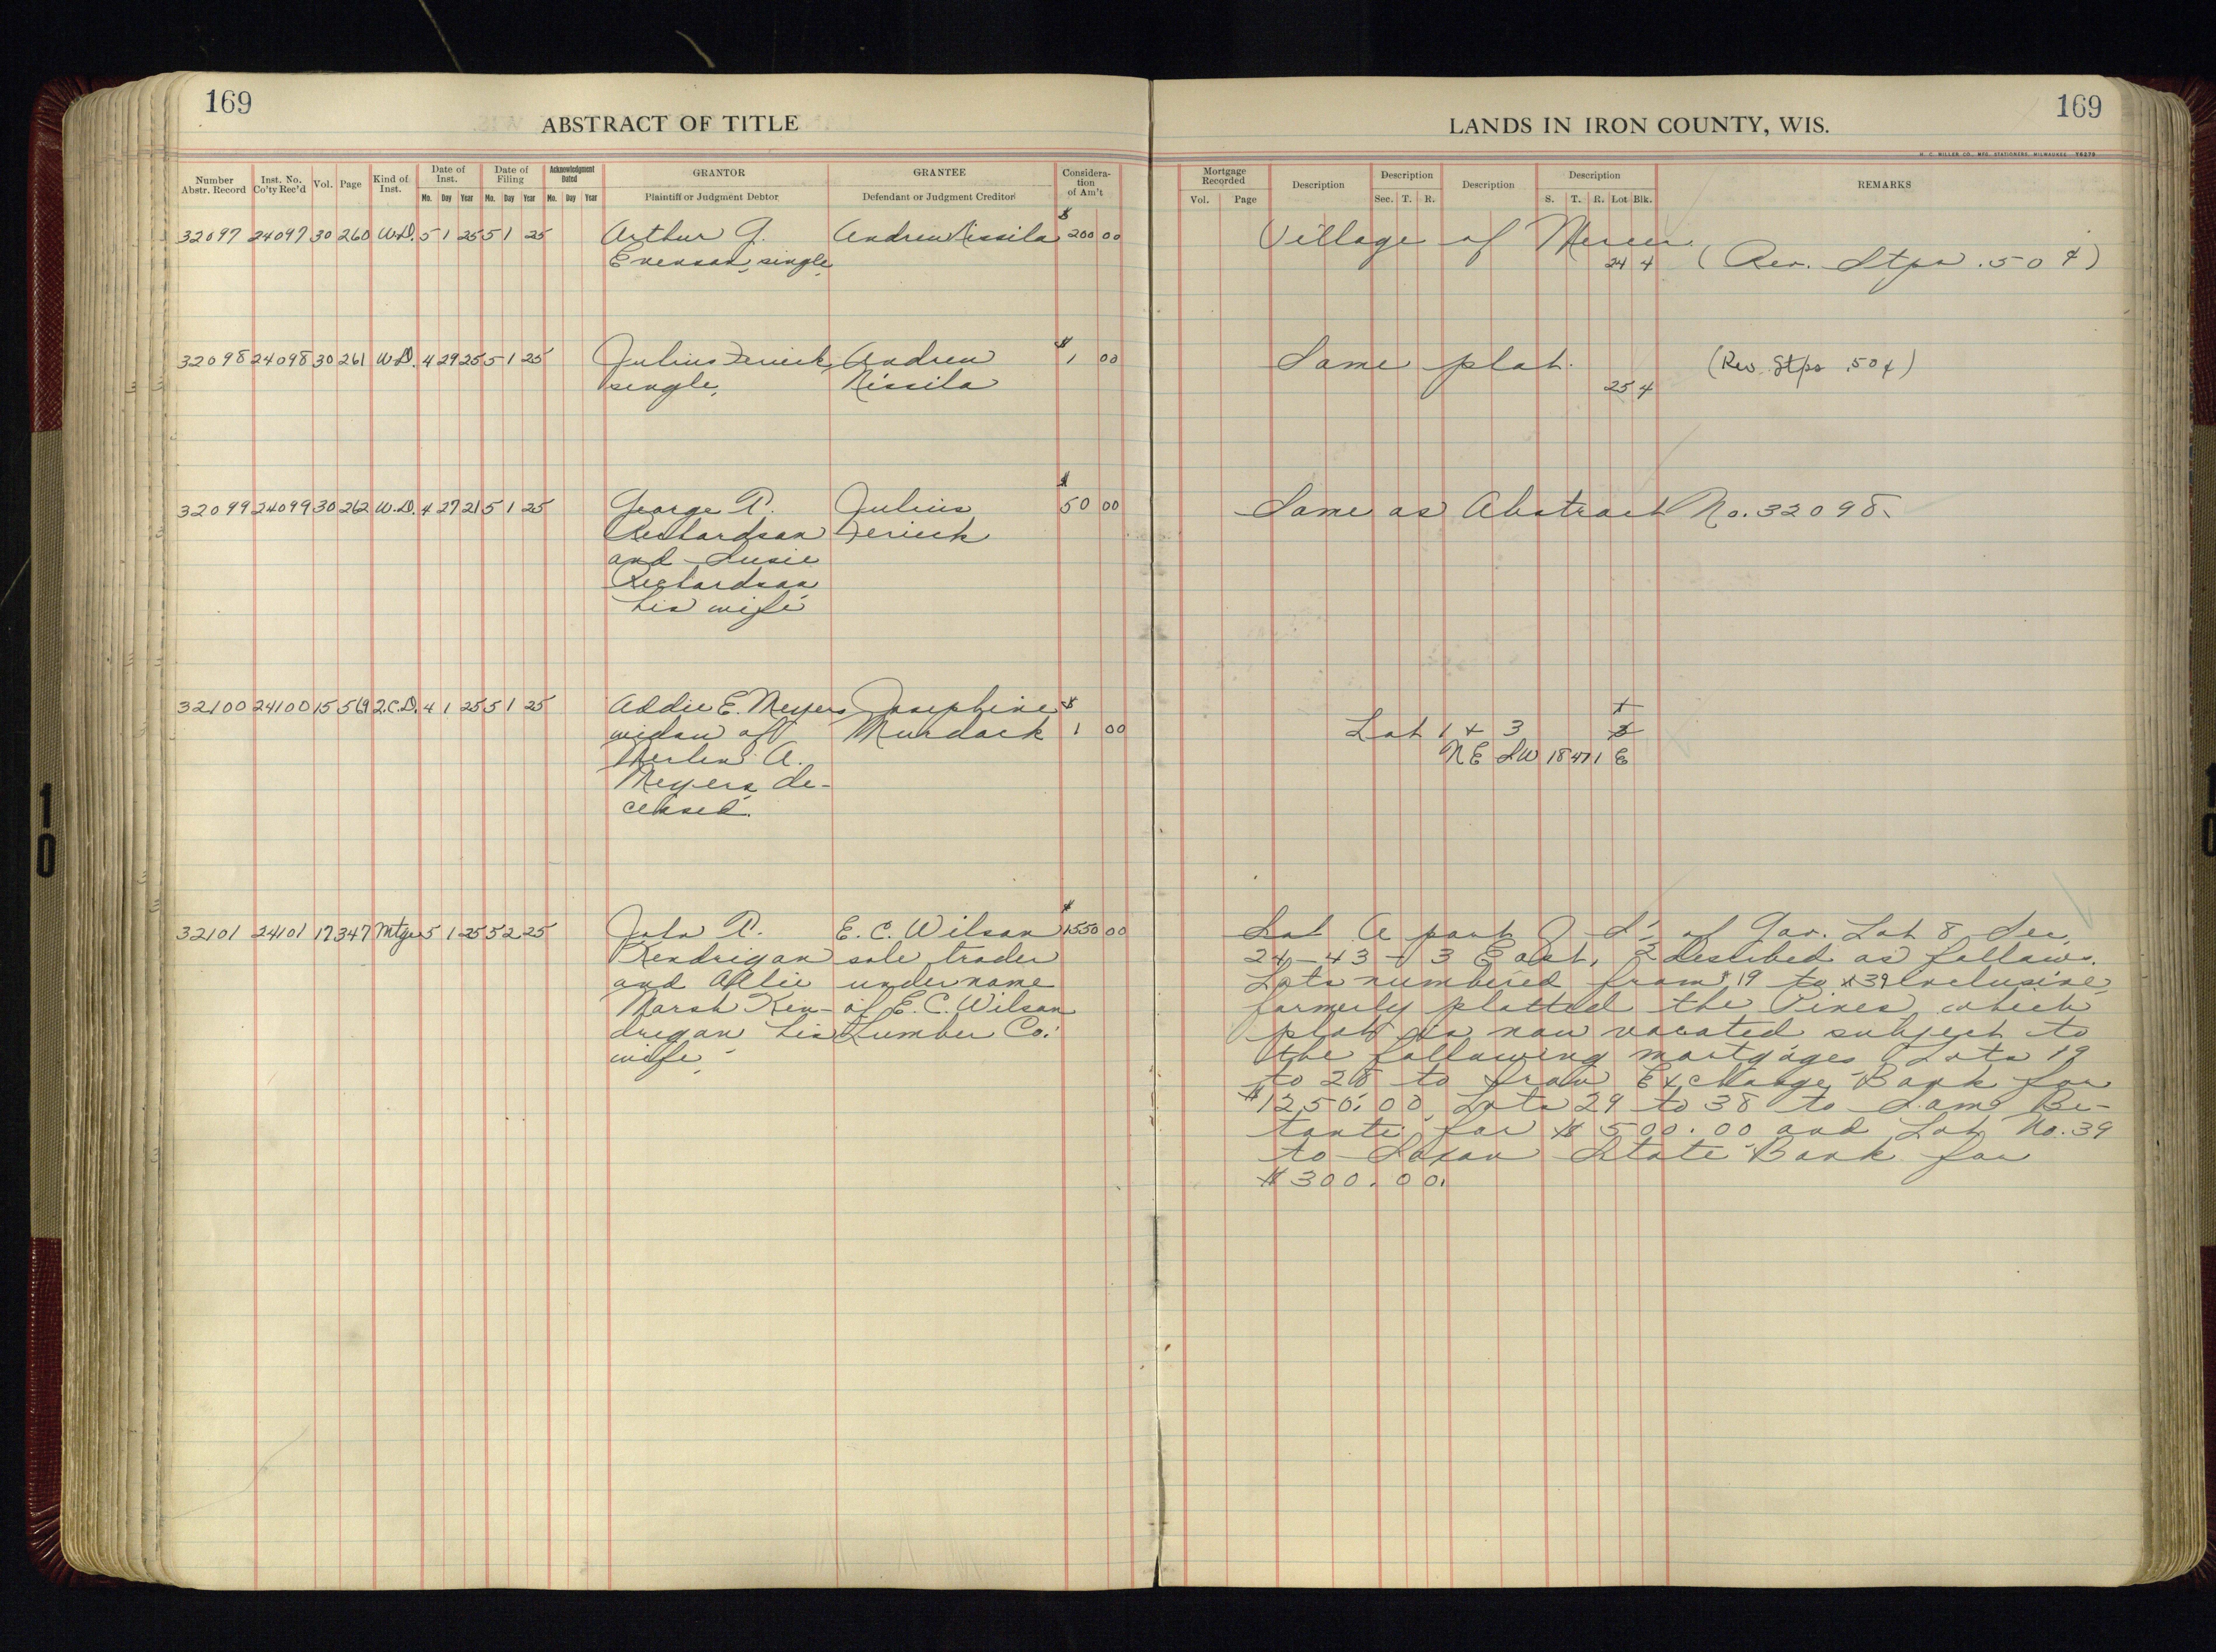 169
ABSTRACT OF TITLE
Number Abstr. Record
Inst. No. Co'ty Rec'd
Vol.
Page
Kind of Inst.
Date of Inst.
Mo. Day Year
Date of Filing
Mo. Day Year
Acknowledgment Dated
Mo. Day Year
GRANTOR
Plaintiff or Judgment Debtor
GRANTEE
Defendant or Judgment Creditor
Considera-
tion
of Am't
32097 24097 30 260 W.D. 5 1 25 5 1 25 Arthur J. Andrew Nissila $200 00
Evenson, single,
32098 24098 30 261 W.D. 4 29 25 5 1 25 Julius Andrew $1 00
single, Nissila
32099 24099 30 262 W.D. 4 27 21 5 1 25 George P. Julius $50 00
Richardson
and Susie
Richardson
his wife
32100 24100 15 569 2.C.D. 4 1 25 5 1 25 Addie E. Meyers Josephine $
widow of Murdock 1 00
Merlin A.
Meyers, de-
ceased.
32101 24101 17 347 Mtge 5 1 25 5 2 25 John P. E. C. Wilson $1550 00
Kendrigan sole trader
and Allie under name
Marsh Ken- of E. C. Wilson
drigan his Lumber Co.
wife,
169
LANDS IN IRON COUNTY, WIS.
H. C. MILLER CO., MFG. STATIONERS, MILWAUKEE 78270
Mortgage Recorded
Vol. Page
Description
Description
Sec. T. R.
Description
Description
S. T. R. Lot Blk.
REMARKS
Village of Mercer
24 4 (Rev. Stps .50¢)
Same plat. (Rev. Stps .50¢)
25 4
Same as Abstract No. 32098.
Lot 1 & 3
NE SW 18 47 1 E
Lot A part of Gov. Lot 8 Sec.
24-43-3 East, described as follows.
Lots numbered from 19 to 39 inclusive,
formerly platted the Pines which
plat is now vacated subject to
the following mortgages Lots 19
to 28 to Iron Exchange Bank for
$1250.00, Lots 29 to 38 to Same Be-
for $500.00 and Lot No. 39
to Saxon State Bank for
$300.00.